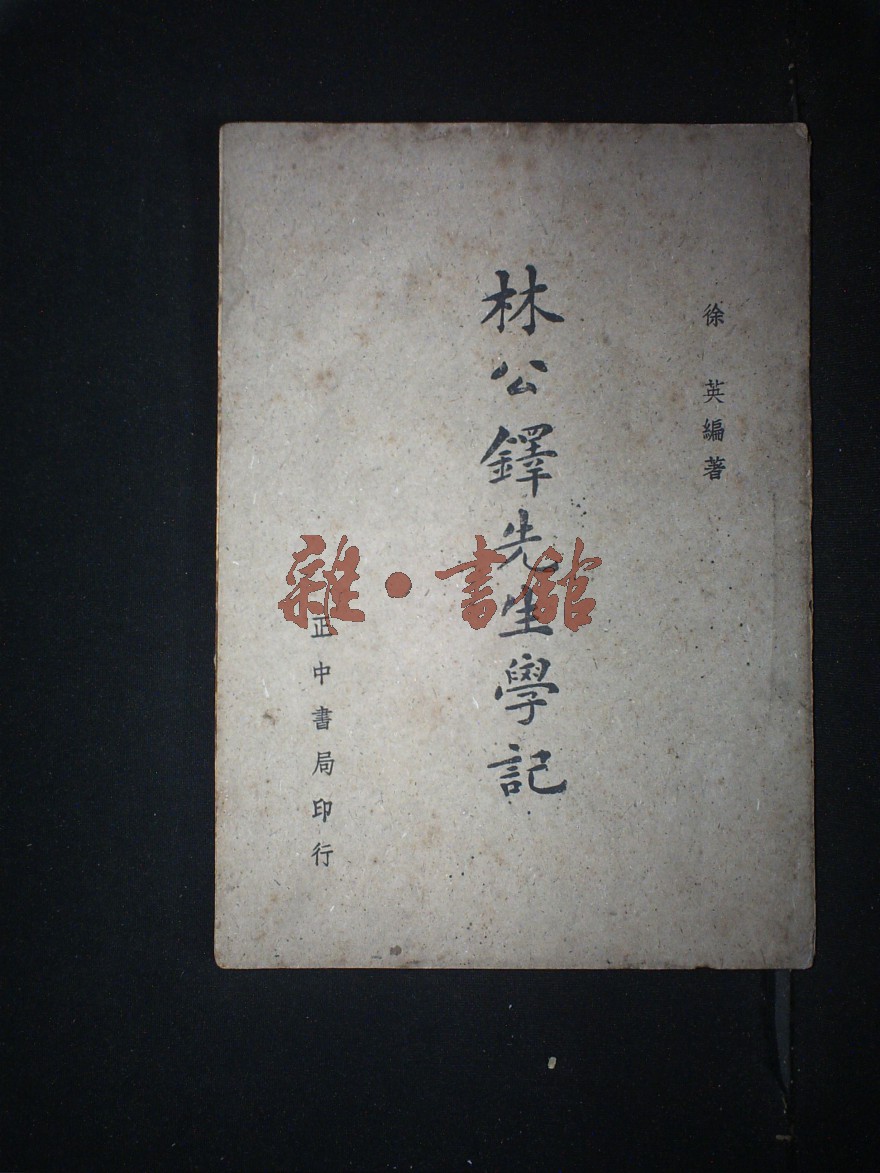 徐英編著
林公鐸先生學記
正中書局印行
雜·書館